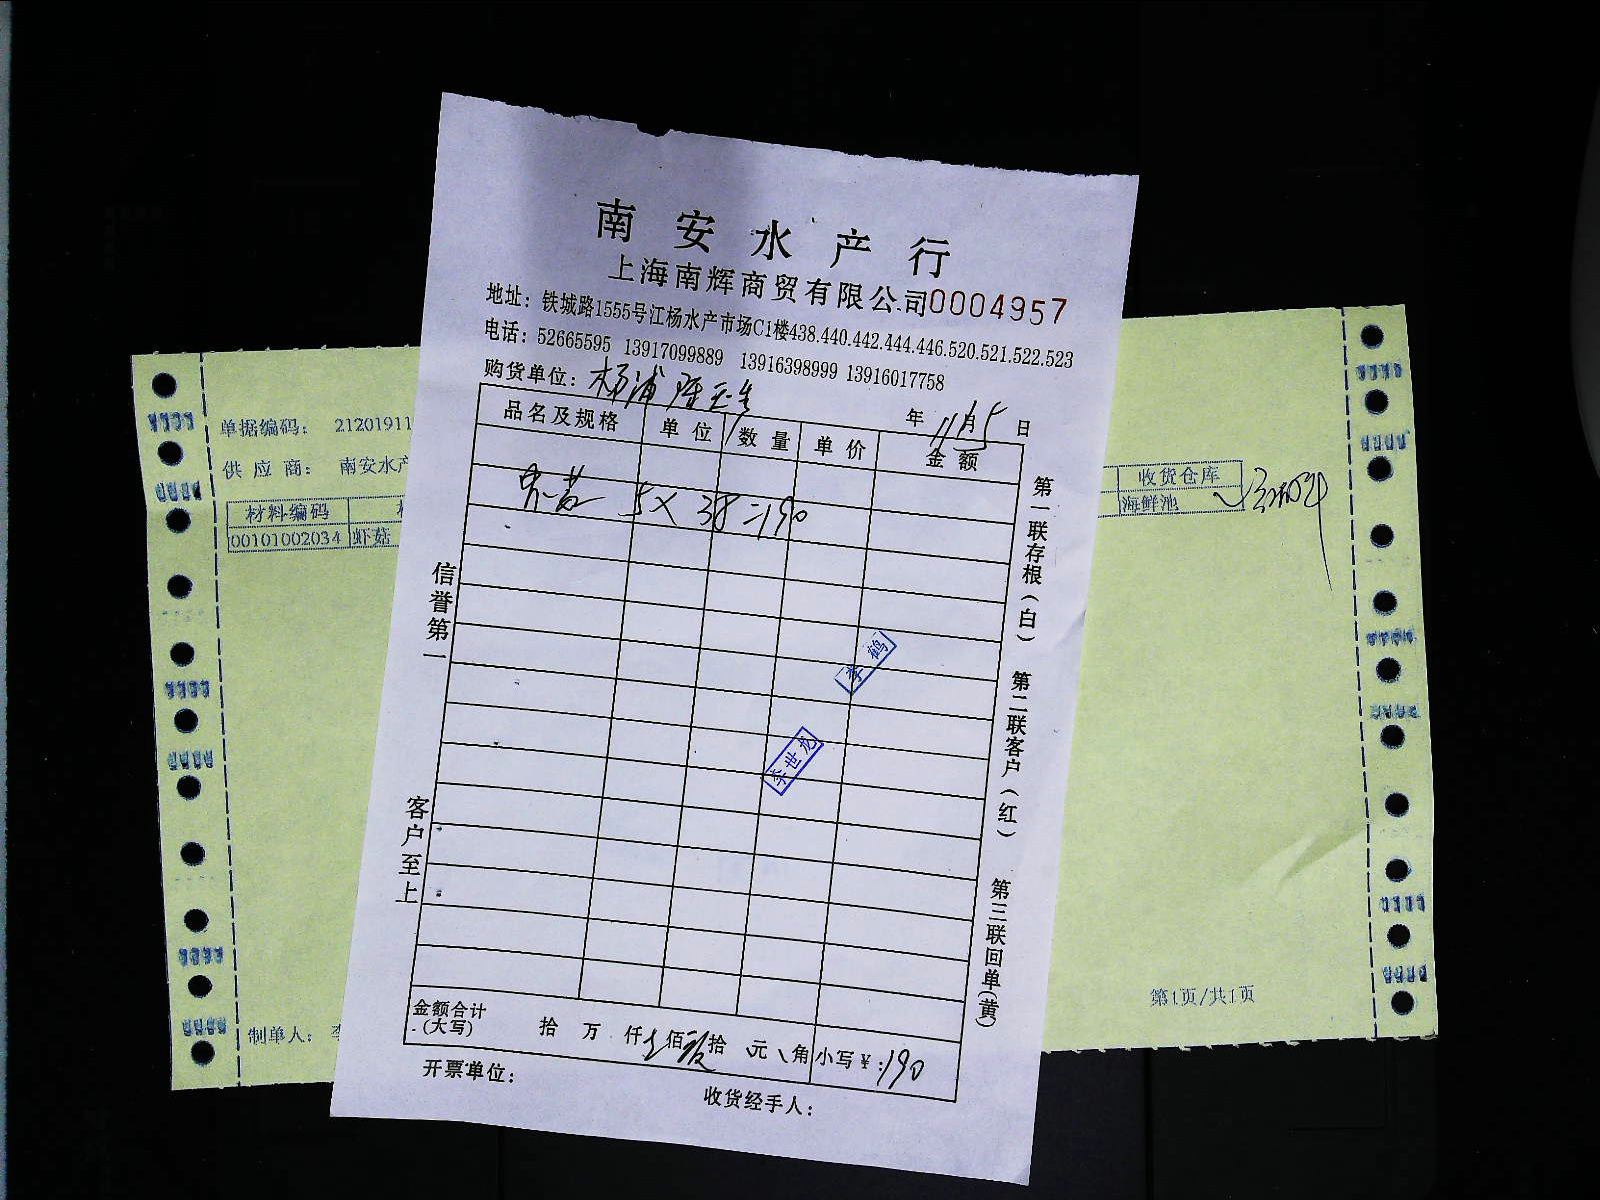 南安水产行
上海南辉商贸有限公司0004957
地址：铁城路1555号江杨水产市场C1楼438.440.442.444.446.520.521.522.523
电话：52665595 13917099889 13916398999 13916017758
购货单位：杨浦
年11月5日
品名及规格 单位 数量 单价 金额
5×38=190
李鹤
李世龙
金额合计(大写) 拾万仟壹佰玖拾元角 小写¥:190
开票单位：
收货经手人：
信誉第一
客户至上
第一联存根(白)
第二联客户(红)
第三联回单(黄)
单据编码： 21201911
供应商： 南安水产
材料编码
00101002034 虾菇
制单人： 李
收货仓库
海鲜池
第1页/共1页